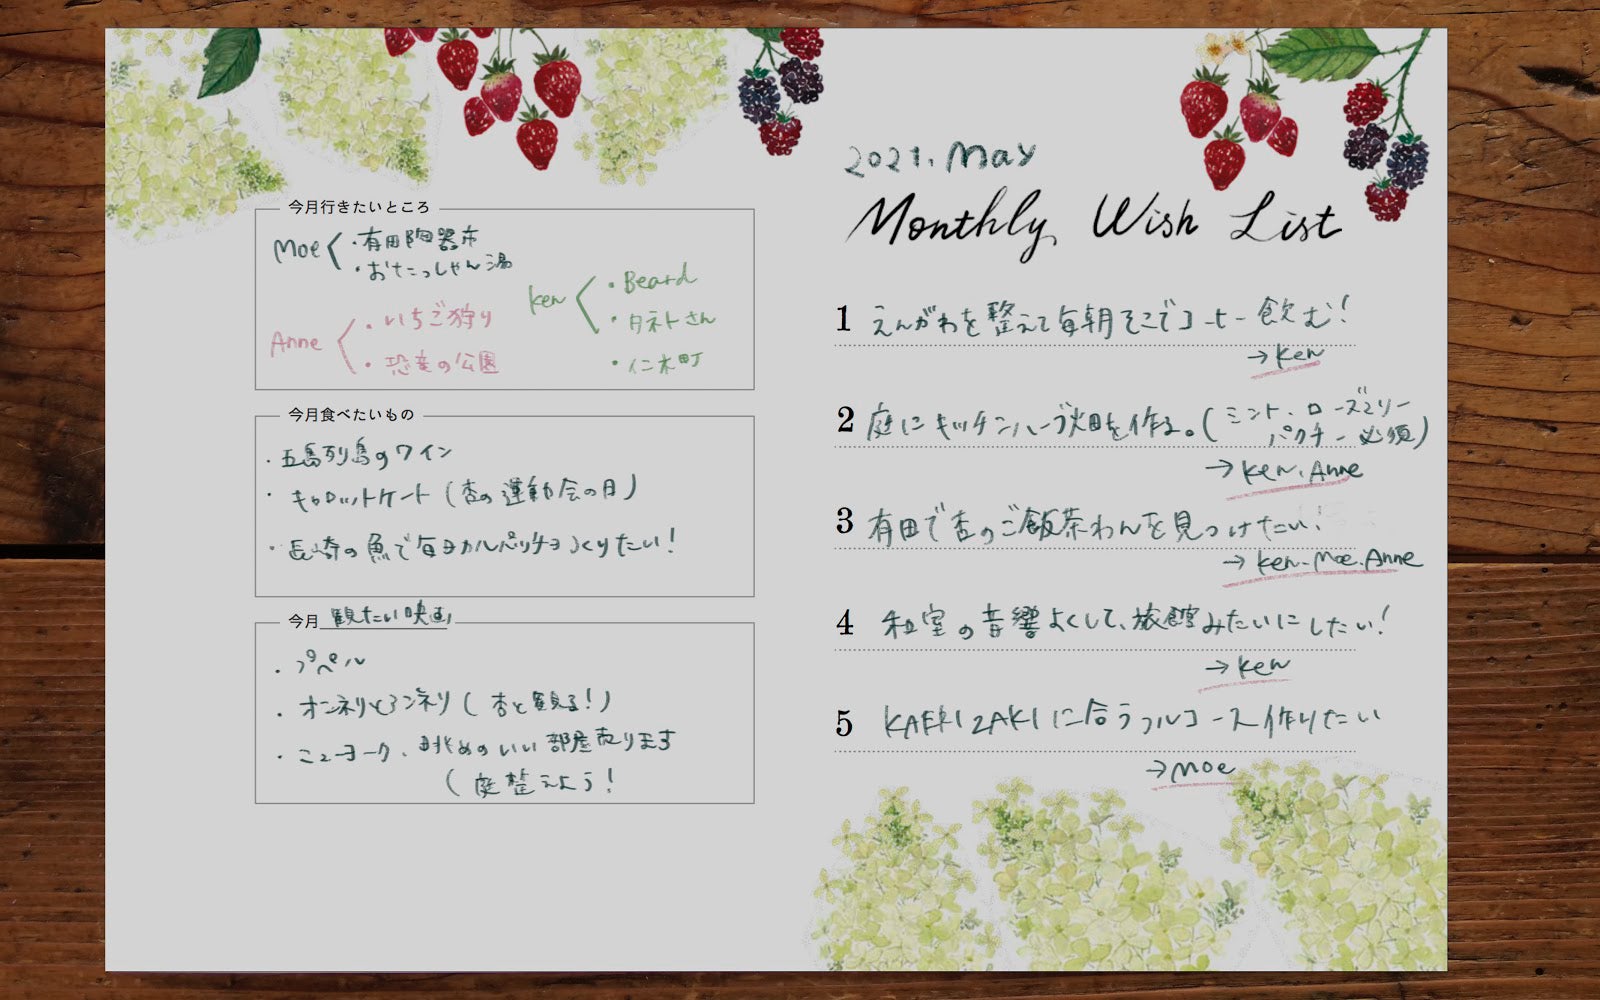 今月行きたいところ
Moe
・有田陶器市
・おたっしゃん湯
Anne
・いちご狩り
・恐竜の公園
ken
・Beard
・タネトさん
・仁木町
今月食べたいもの
・五島列島のワイン
・キャロットケーキ(杏の運動会の日)
・長崎の魚で毎日カルパッチョつくりたい!
今月 観たい映画
・プペル
・オンネリとアンネリ(杏と観る!)
・ニューヨーク、眺めのいい部屋売ります
(庭整えよう!
2021. May
Monthly Wish List
1 えんがわを整えて毎朝そこでコーヒー飲む!
→ ken
2 庭にキッチンハーブ畑を作る。(ミント、ローズマリー
パクチー必須)
→ ken. Anne
3 有田で杏のご飯茶わんを見つけたい、
→ ken. Moe. Anne
4 和室の音響よくして、旅館みたいにしたい!
→ ken
5 KAERIZAKIに合うフルコース作りたい
→ Moe